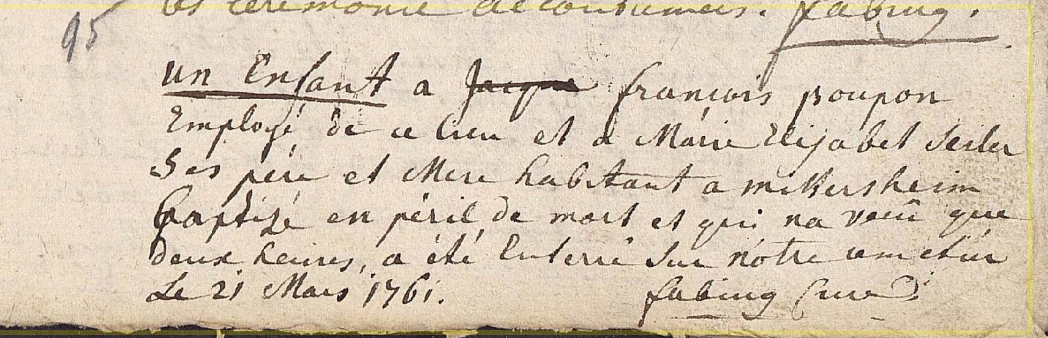 les cérémonie accoutumées. fabing.
95
un Enfant a Jacque françois poupon
Employé de ce lieu et a Marie Elisabet Seiler
Ses pére et Mere habitant a mittersheim
baptizé en péril de mort et qui na vecû que
deux heures, a été Enterré sur notre cimetier
Le 21 Mars 1761. fabing Curé